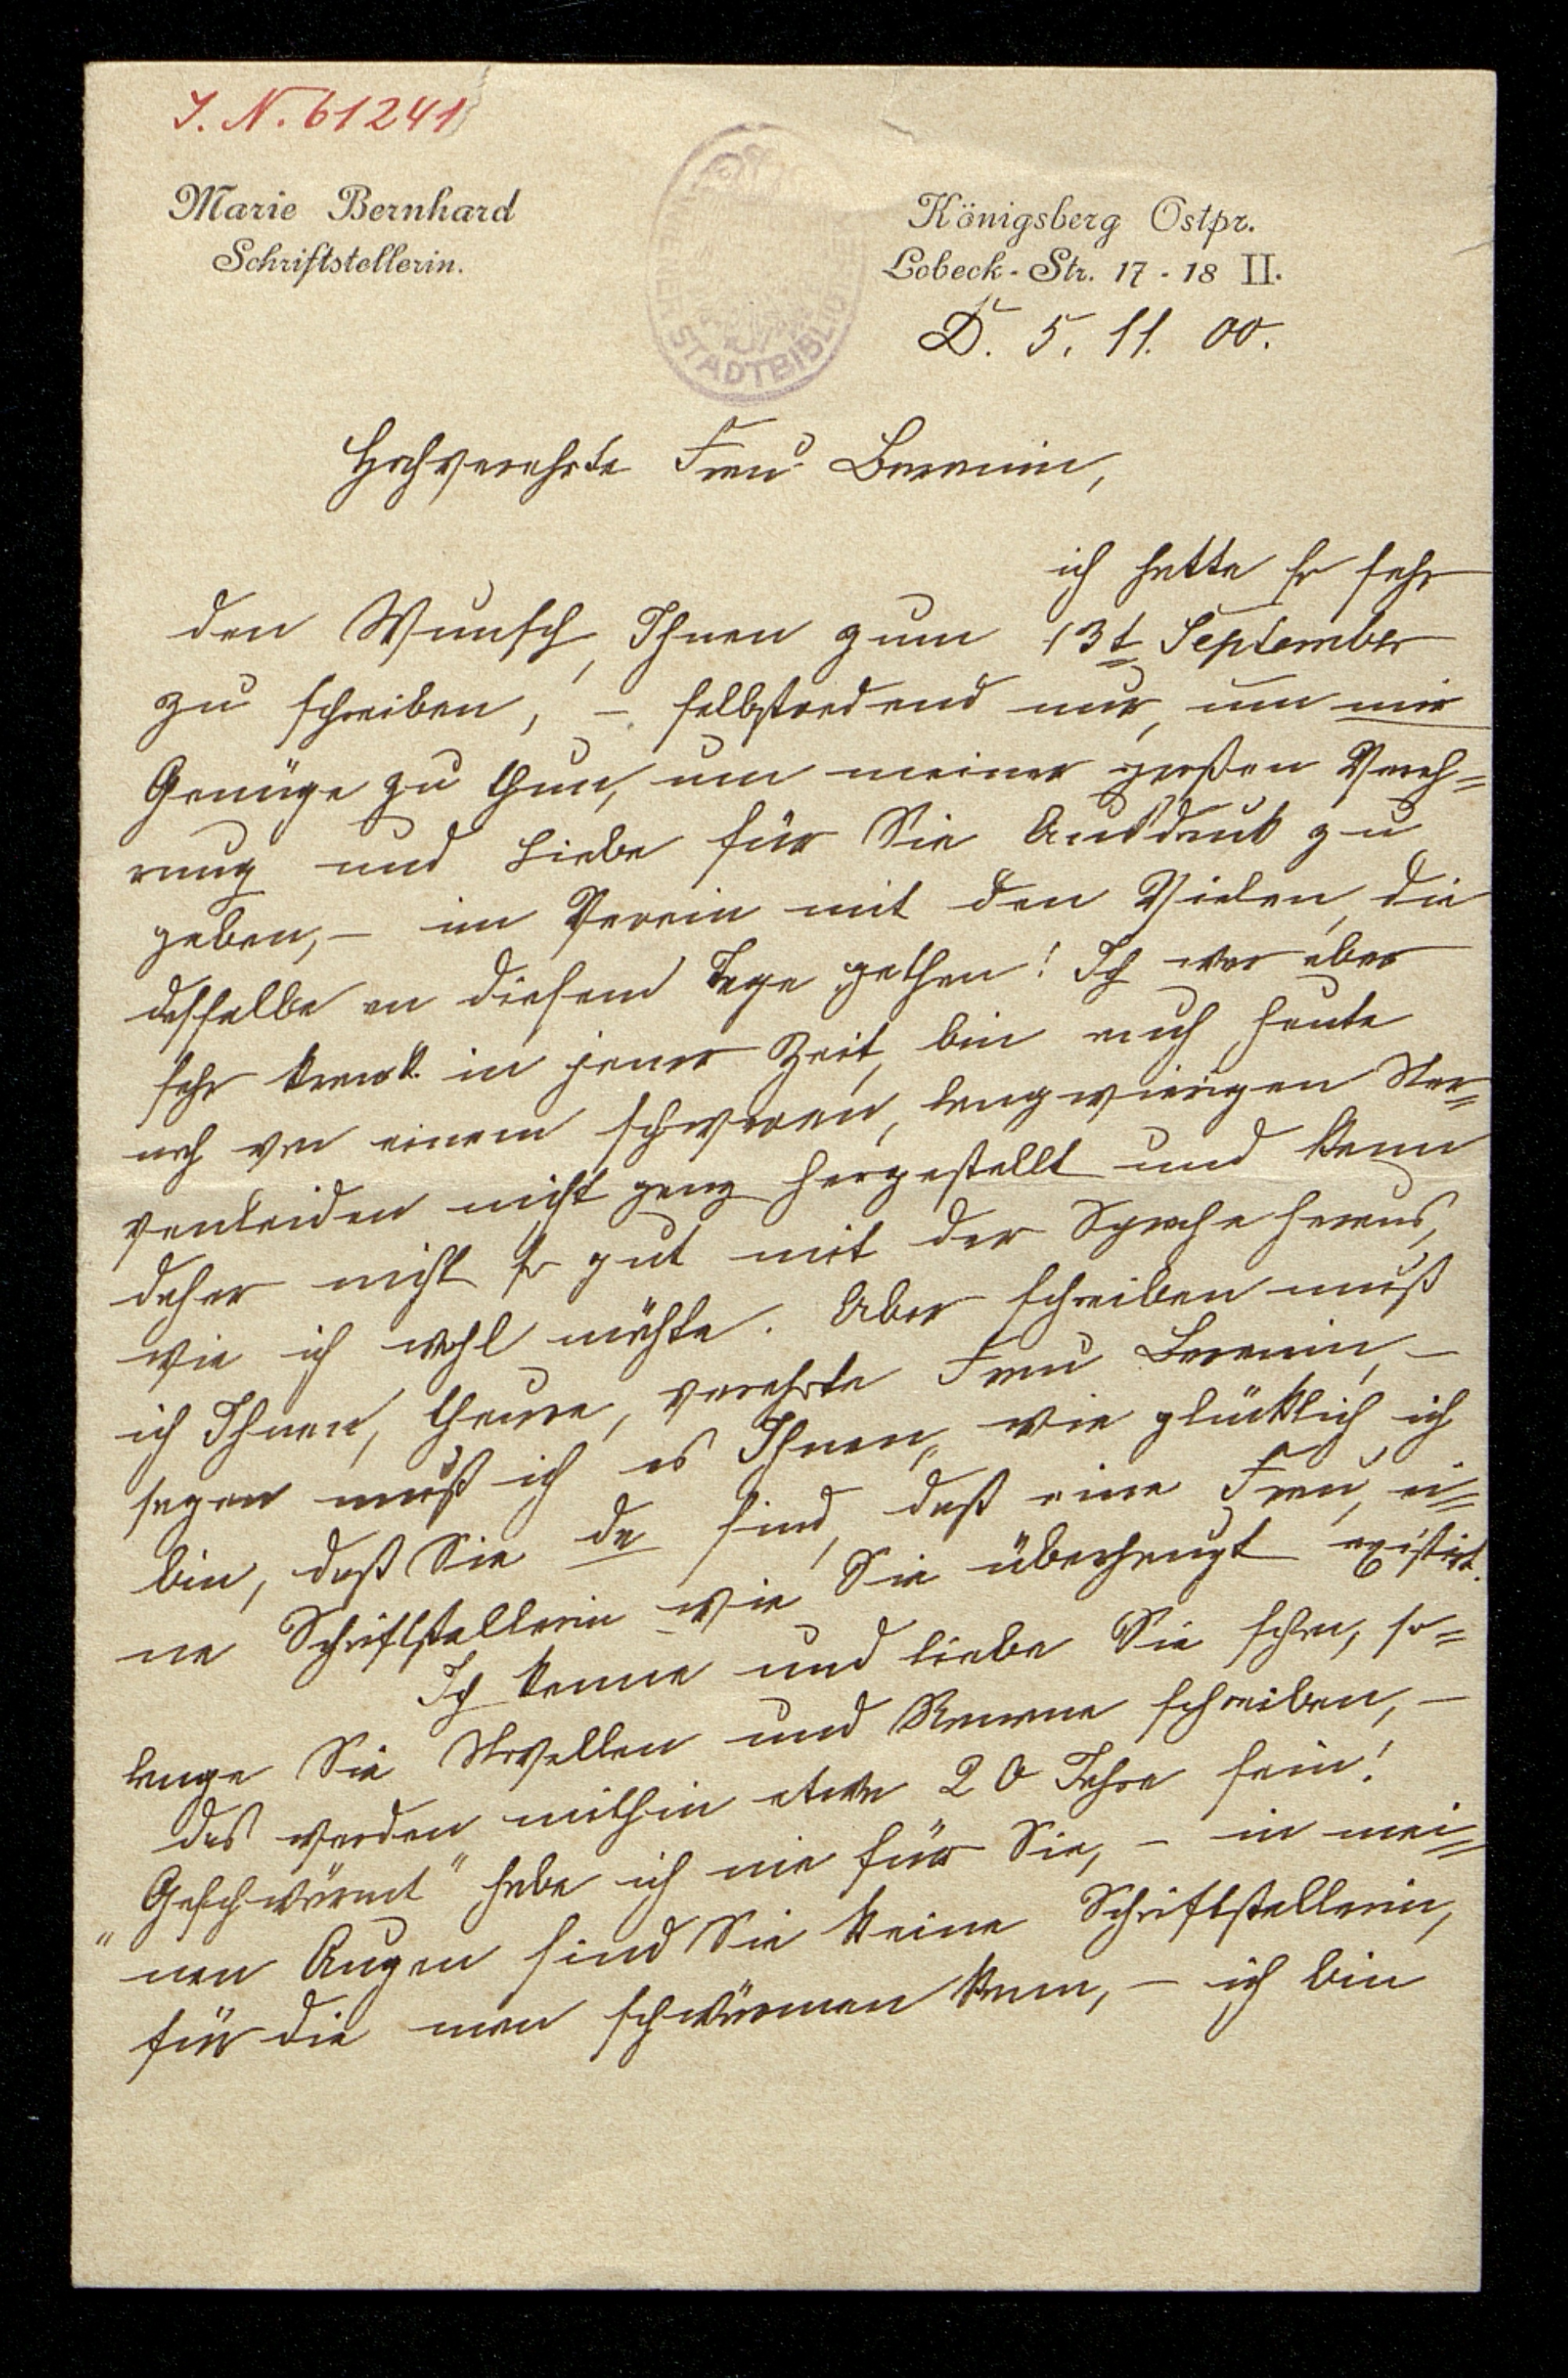 I. N. 61241
Marie Bernhard
Schriftstellerin.
Königsberg Ostpr.
Lobeck-Str. 17-18 II.
STADTBIBLIO
D. 5. 11. 00.
Hochverehrte Frau Baronin,
ich hatte so sehr
den Wunsch, Ihnen zum 13t September
zu schreiben, – selbstredend nur, um mir
Genüge zu thun, um meiner großen Vereh=
rung und Liebe für Sie Ausdruck zu
geben, – im Verein mit den Vielen, die
dasselbe an diesem Tage gethan! Ich war aber
sehr krank in jener Zeit, bin auch heute
noch von einem schweren, langwierigen Ner=
venleiden nicht ganz hergestellt und kann
daher nicht so gut mit der Sprache heraus,
wie ich wohl möchte. Aber schreiben muß
ich Ihnen, theure, verehrte Frau Baronin, –
sagen muß ich es Ihnen, wie glücklich ich
bin, daß Sie da sind, daß eine Frau, ei=
ne Schriftstellerin wie Sie überhaupt existirt.
Ich kenne und liebe Sie schon, so=
lange Sie Novellen und Romane schreiben, –
das werden mithin etwa 20 Jahre sein!
„Geschwärmt“ habe ich nie für Sie, – in mei=
nen Augen sind Sie keine Schriftstellerin,
für die man schwärmen kann, – ich bin